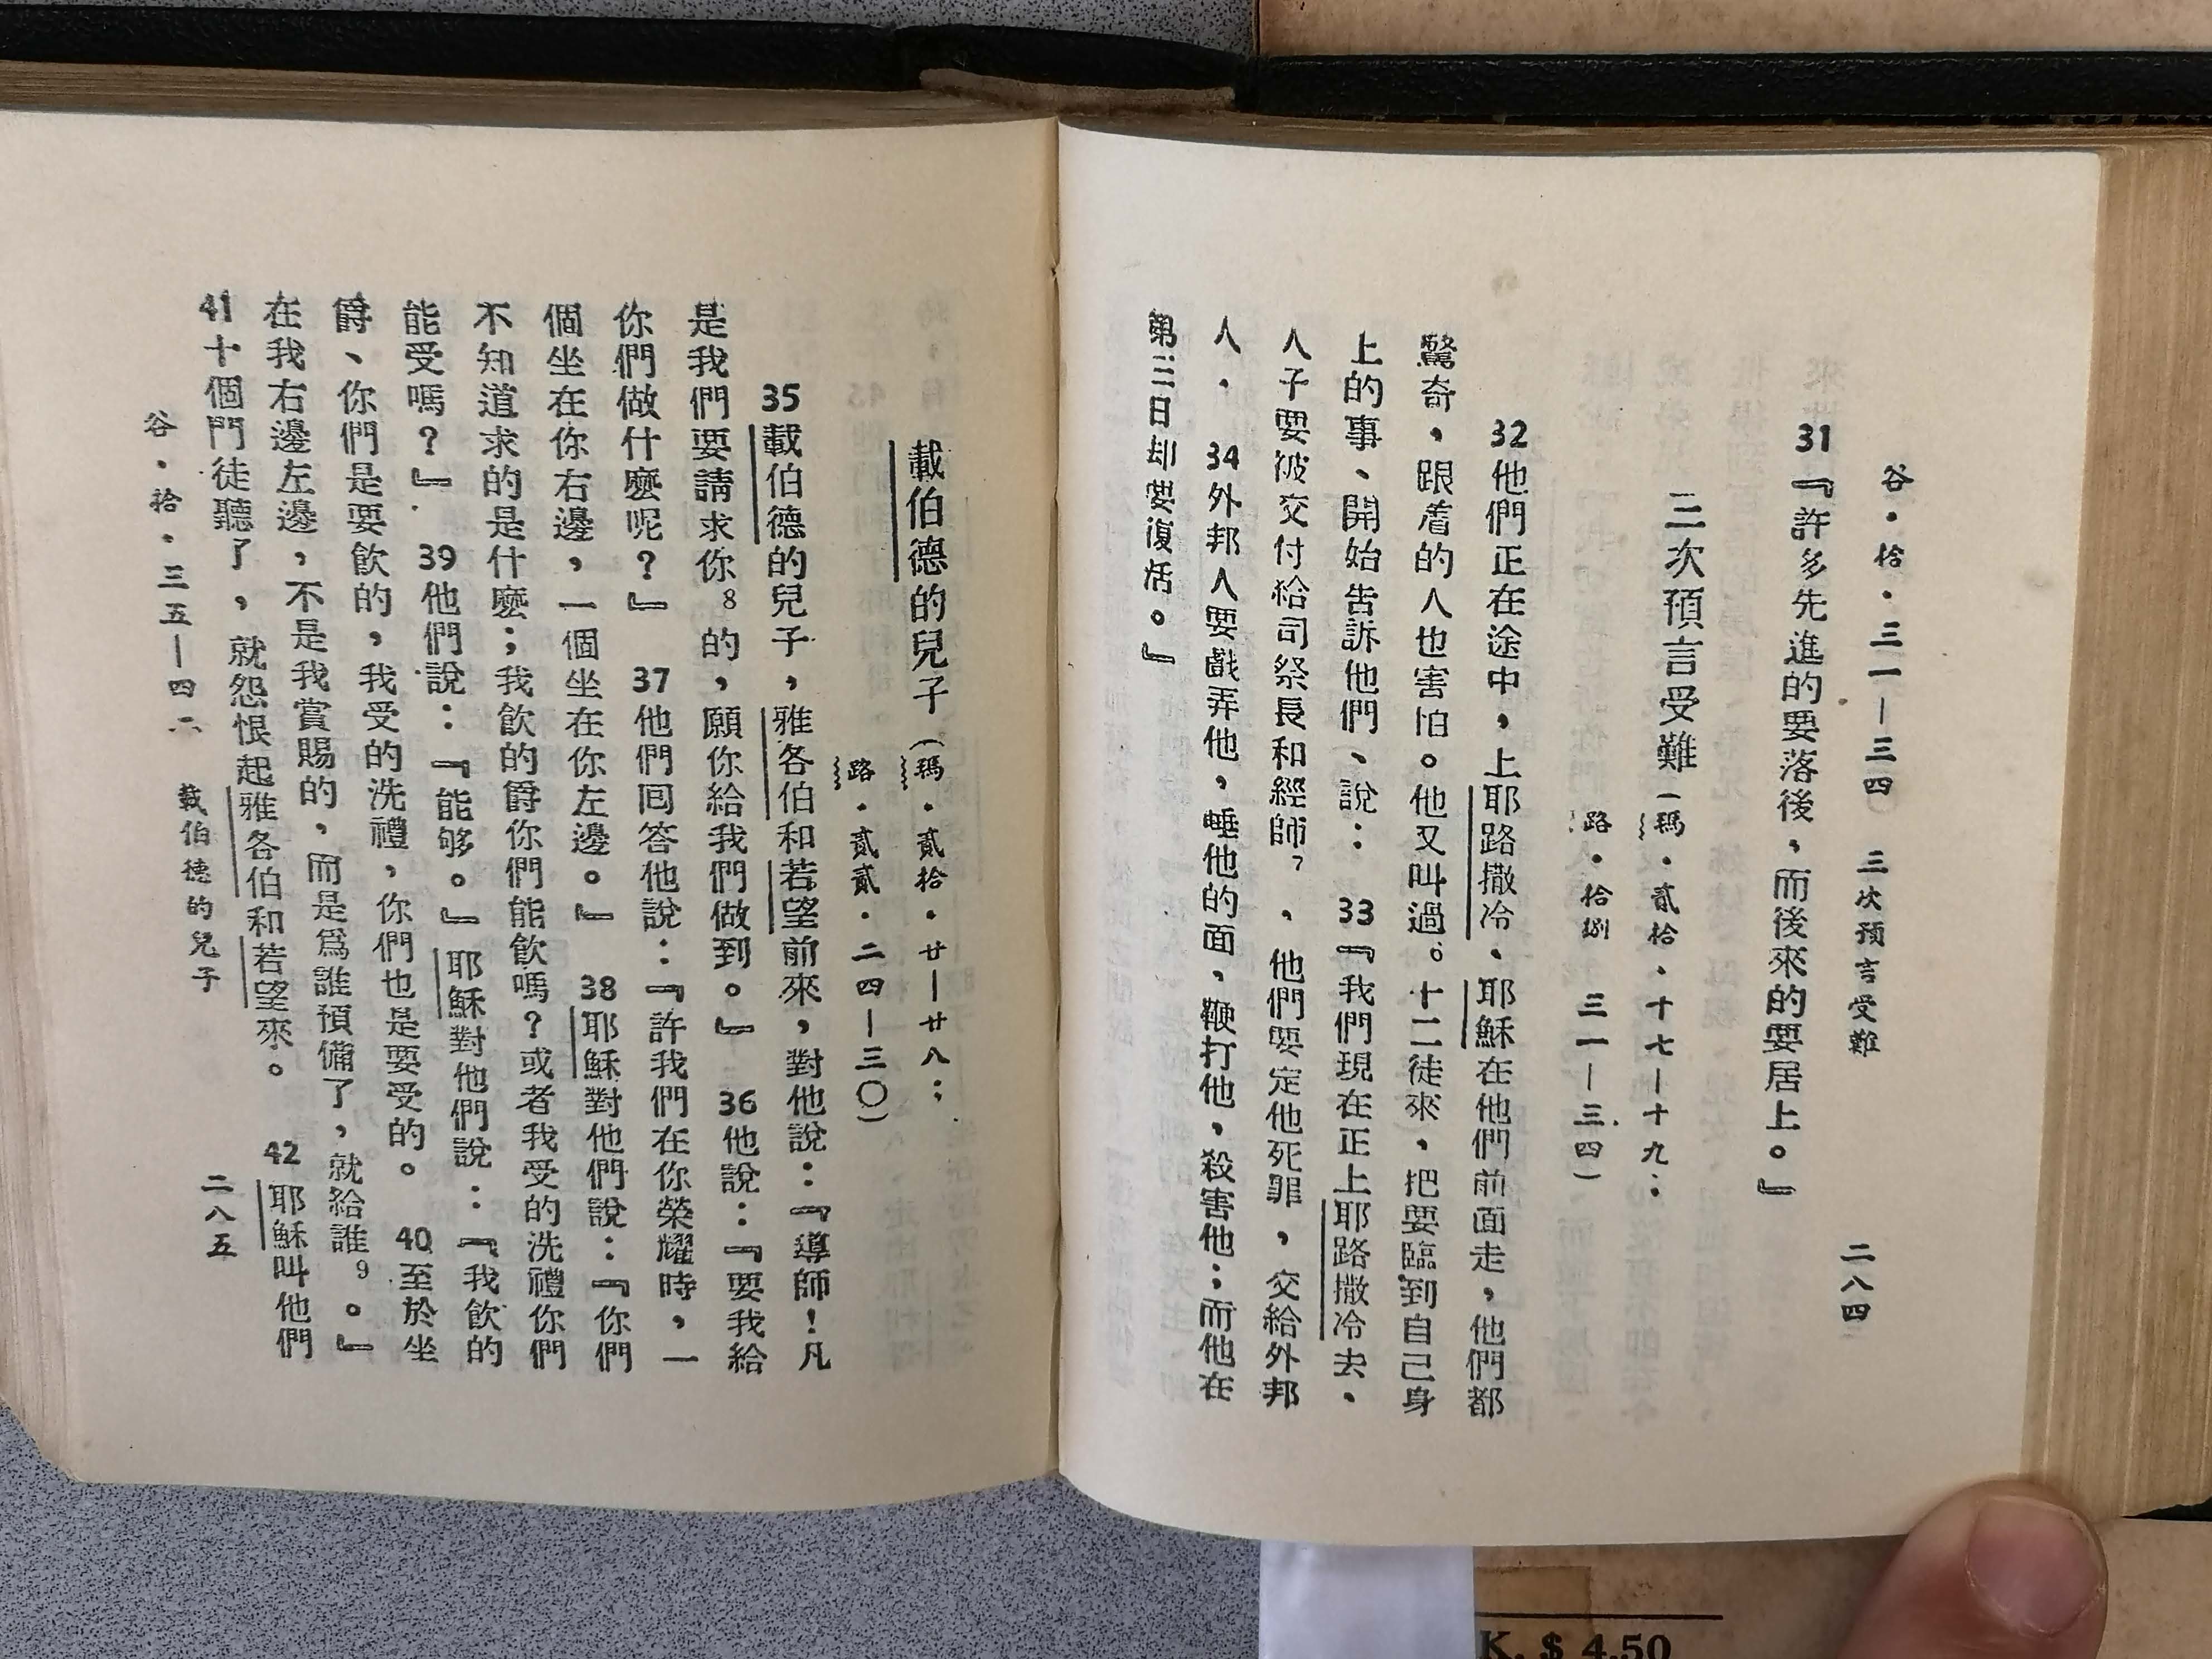 谷．拾．三一—三四　三次預言受難　二八四
31『許多先進的要落後，而後來的要居上。』
三次預言受難（瑪．貳拾．十七—十九；
路．拾捌　三一—三四）
32他們正在途中，上耶路撒冷、耶穌在他們前面走，他們都
驚奇，跟着的人也害怕。他又叫過。十二徒來，把要臨到自己身
上的事、開始告訴他們、說：33『我們現在正上耶路撒冷去、
人子要被交付給司祭長和經師7，他們要定他死罪，交給外邦
人．34外邦人要戲弄他，唾他的面，鞭打他，殺害他；而他在
第三日却要復活。』
載伯德的兒子（瑪．貳拾．廿—廿八；
路．貳貳．二四—三〇）
35載伯德的兒子，雅各伯和若望前來，對他說：『導師！凡
是我們要請求你8的，願你給我們做到。』36他說：『要我給
你們做什麼呢？』37他們囘答他說：『許我們在你榮耀時，一
個坐在你右邊，一個坐在你左邊。』38耶穌對他們說：『你們
不知道求的是什麼；我飲的爵你們能飲嗎？或者我受的洗禮你們
能受嗎？』39他們說：『能够。』耶穌對他們說：『我飲的
爵、你們是要飲的，我受的洗禮，你們也是要受的。40至於坐
在我右邊左邊，不是我賞賜的，而是爲誰預備了，就給誰9。』
41十個門徒聽了，就怨恨起雅各伯和若望來。42耶穌叫他們
谷．拾．三五—四二　載伯德的兒子　二八五
K. $ 4.50